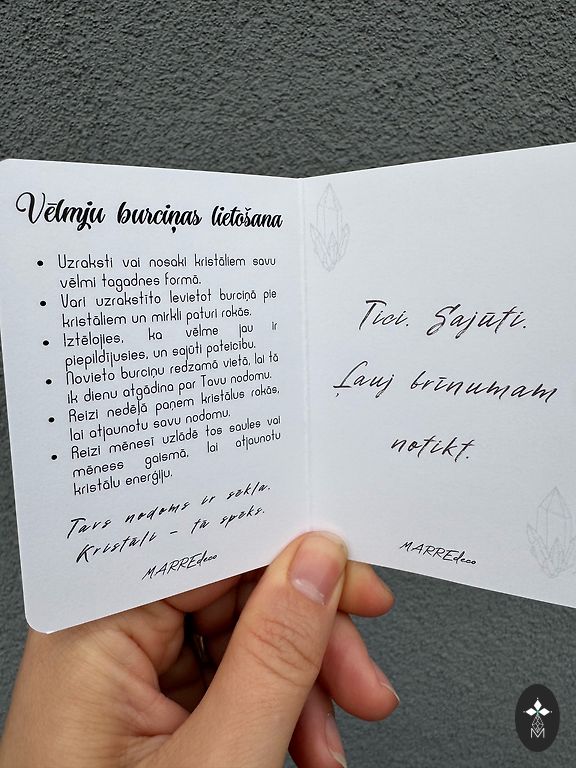 Vēlmju burciņas lietošana
• Uzraksti vai nosaki kristāliem savu
vēlmi tagadnes formā.
• Vari uzrakstīto ievietot burciņā pie
kristāliem un mirkli paturi rokās.
• Iztēlojies, ka vēlme jau ir
piepildījusies, un sajūti pateicību.
• Novieto burciņu redzamā vietā, lai tā
ik dienu atgādina par Tavu nodomu.
• Reizi nedēļā paņem kristālus rokās,
lai atjaunotu savu nodomu.
• Reizi mēnesī uzlādē tos saules vai
mēness gaismā, lai atjaunotu
kristālu enerģiju.
Tavs nodoms ir sēkla.
Kristāli – tā spēks.
MARREdeco
Tici. Sajūti.
Ļauj brīnumam
notikt.
MARREdeco
M